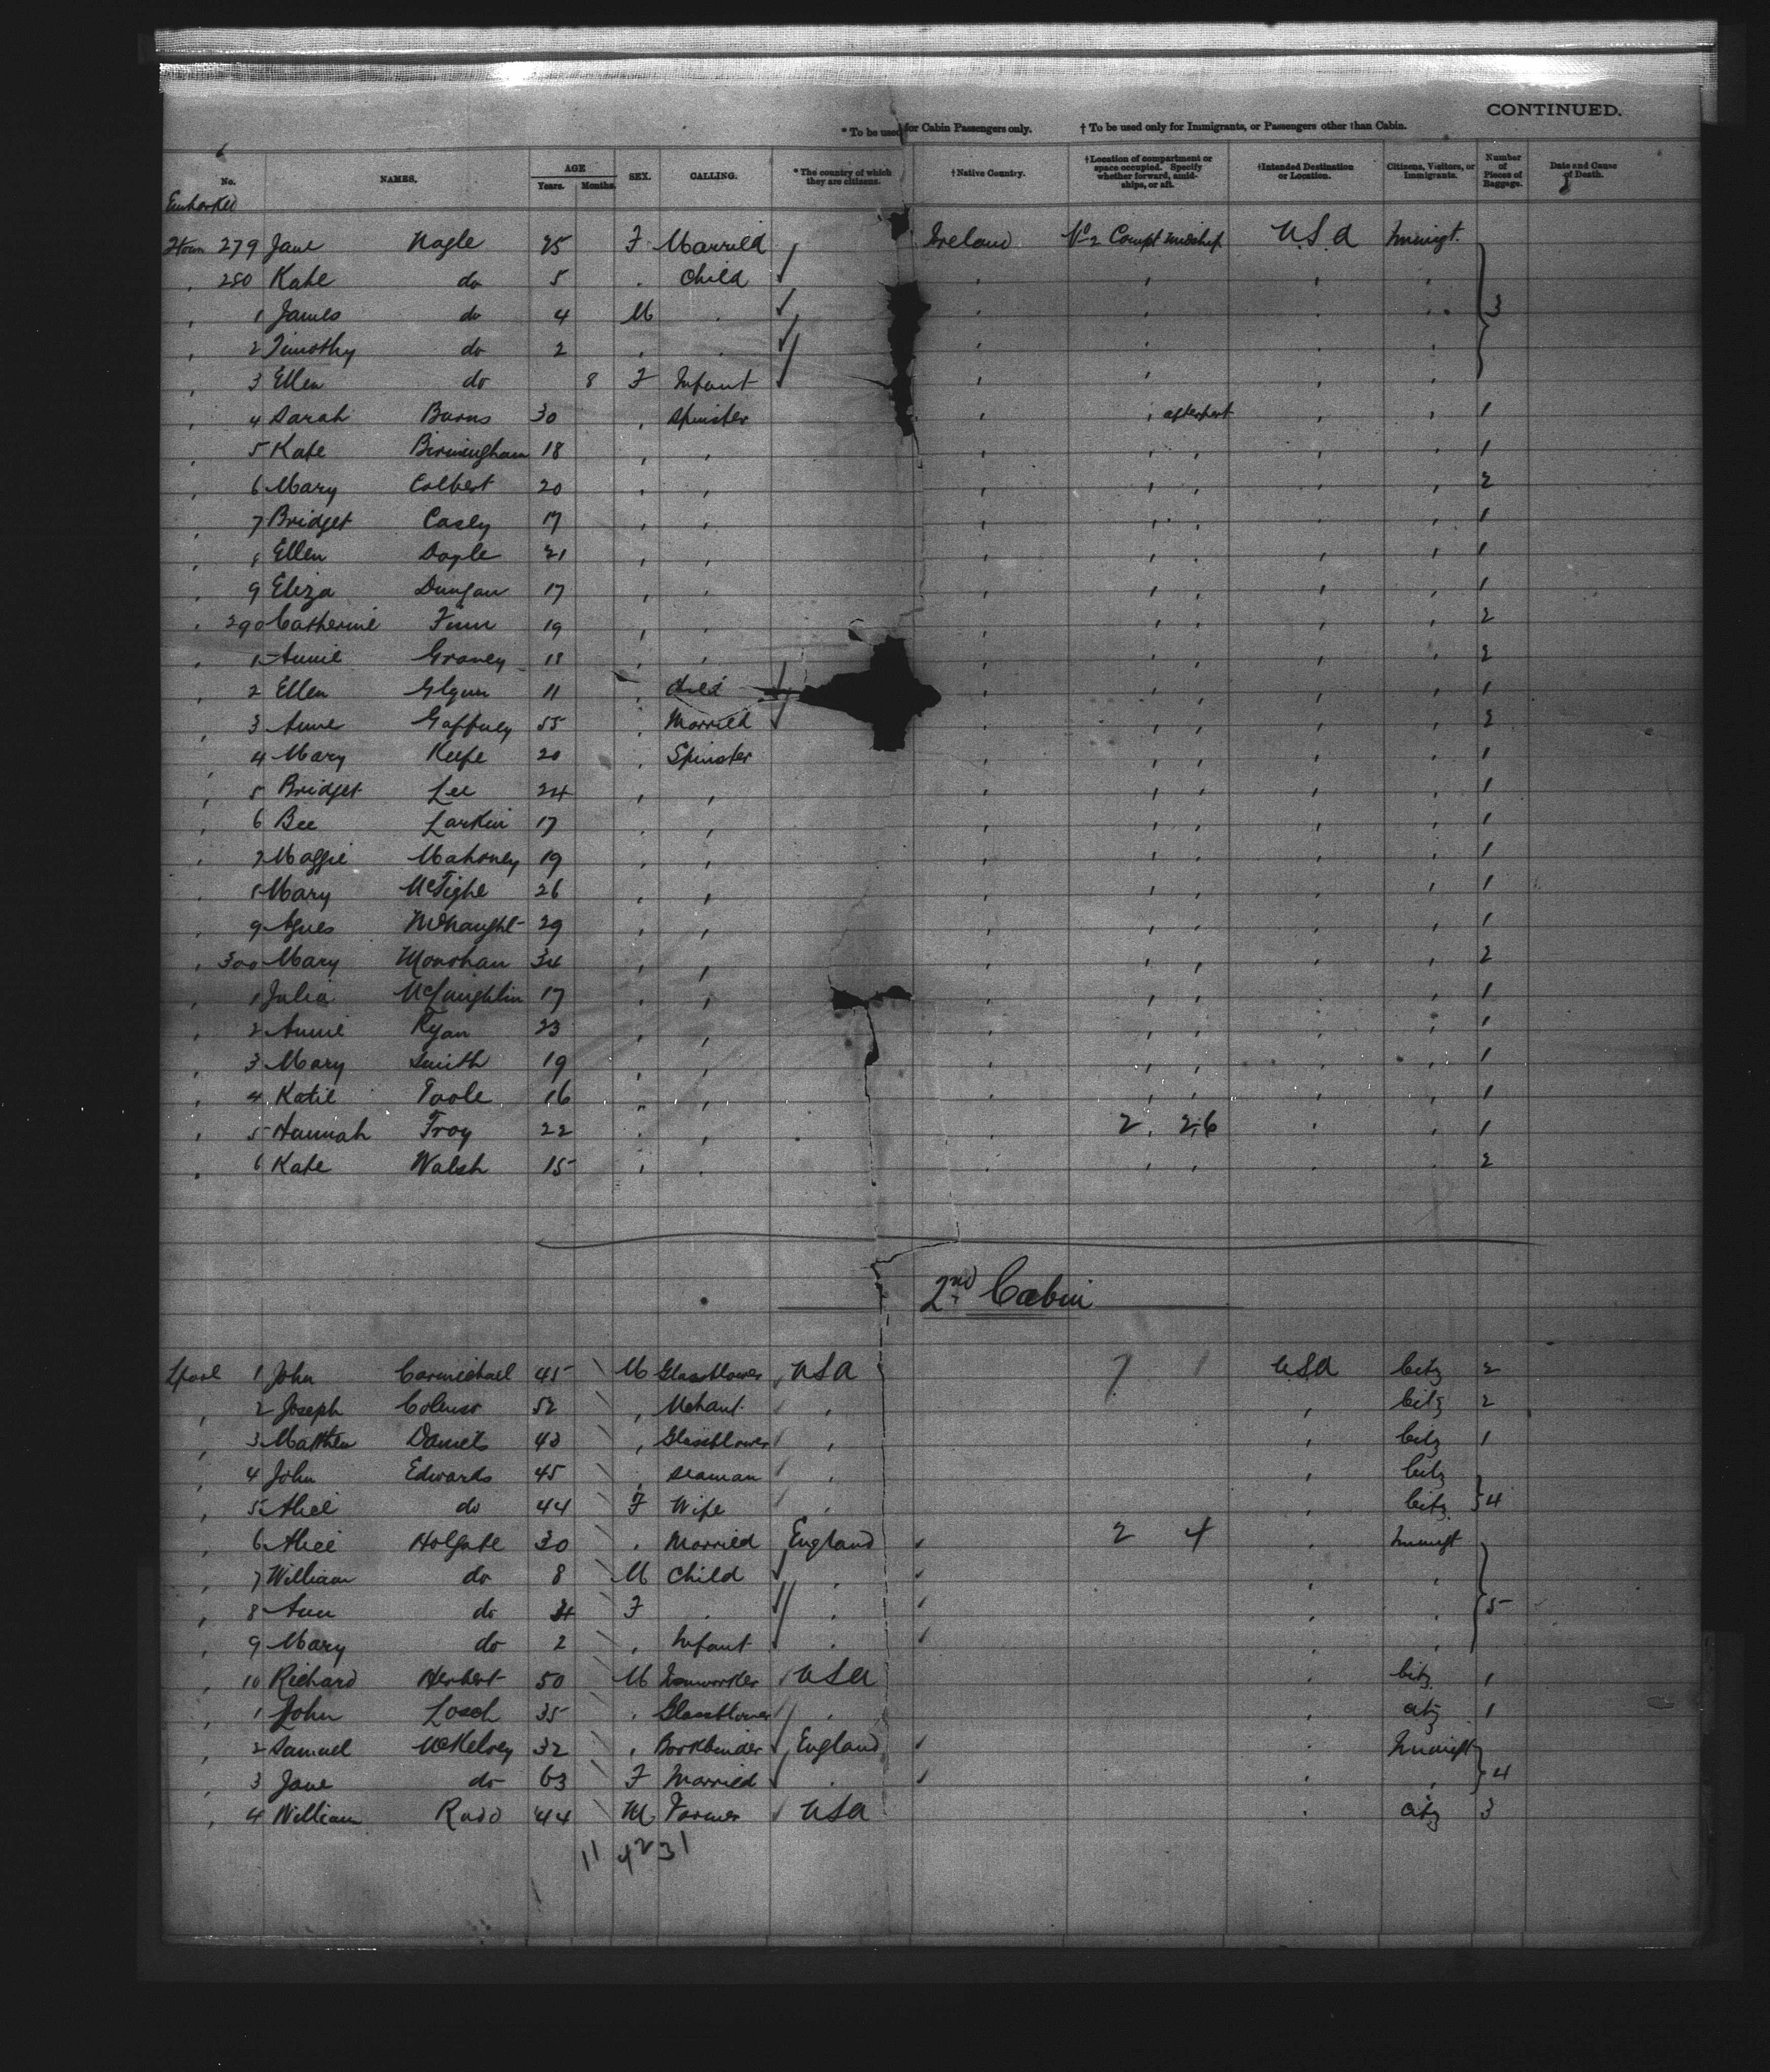 CONTINUED.
* To be used for Cabin Passengers only. † To be used only for Immigrants, or Passengers other than Cabin.
No. NAMES. AGE Years. Months. SEX. CALLING. * The country of which they are citizens. † Native Country. † Location of compartment or space occupied. Specify whether forward, amidships, or aft. † Intended Destination or Location. Citizens, Visitors, or Immigrants. Number of Pieces of Baggage. Date and Cause of Death.
Embarked
Qtown 279 Jane Nagle 25 F Married Ireland No 2 Compt midship U.S.A Immigt.
280 Kate do 5 Child
1 James do 4 M 3
2 Timothy do 2
3 Ellen do 8 F Infant
4 Sarah Burns 30 Spinster afterpart 1
5 Kate Birmingham 18 1
6 Mary Colbert 20 2
7 Bridget Casey 17 1
8 Ellen Doyle 21 1
9 Eliza Dungan 17 1
290 Catherine Finn 19 2
1 Annie Graney 18 2
2 Ellen Glynn 11 Child 1
3 Anne Gaffney 55 Married 2
4 Mary Keefe 20 Spinster 1
5 Bridget Lee 24 1
6 Bee Larkin 17 1
7 Maggie Mahoney 19 1
8 Mary McTighe 26 1
9 Agnes McNaught 29 1
300 Mary Monohan 34 2
1 Julia McLaughlin 17 1
2 Annie Ryan 23 1
3 Mary Smith 19 1
4 Katie Toole 16 1
5 Hannah Troy 22 2 26 1
6 Kate Walsh 15 2
2nd Cabin
Lpool 1 John Carmichael 45 M Glassblower USA 7 1 USA Citz 2
2 Joseph Colmer 52 Mchant Citz 2
3 Matthew Daniels 43 Glassblower Citz 1
4 John Edwards 45 Seaman Citz
5 Alice do 44 F Wife Citz 4
6 Alice Holgate 30 Married England 2 4 Immigt
7 William do 8 M Child
8 Ann do 4 F 5
9 Mary do 2 Infant
10 Richard Herbert 50 M Ironworker USA Citz 1
1 John Losch 35 Glassblower Citz 1
2 Samuel McKelvey 32 Bookbinder England Immigt
3 Jane do 63 F Married 4
4 William Rudd 44 M Farmer USA Citz 3
11 42 31